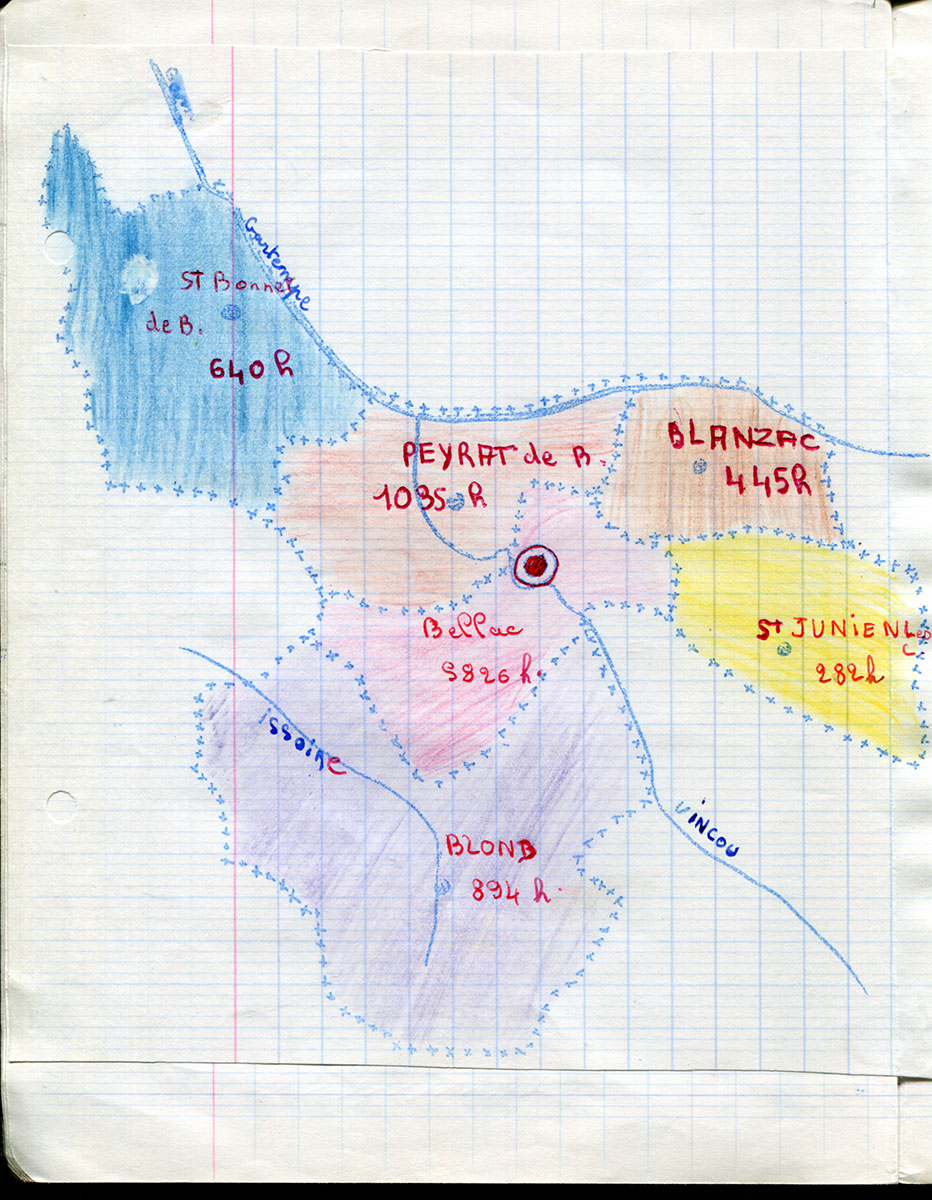 Gartempe
ST Bonnet
de B.
640 h
PEYRAT de B.
1035 h
BLANZAC
445h
ST JUNIEN Les
C
282h
Bellac
5826 h.
ISSOIRE
VINCOU
BLOND
894 h.